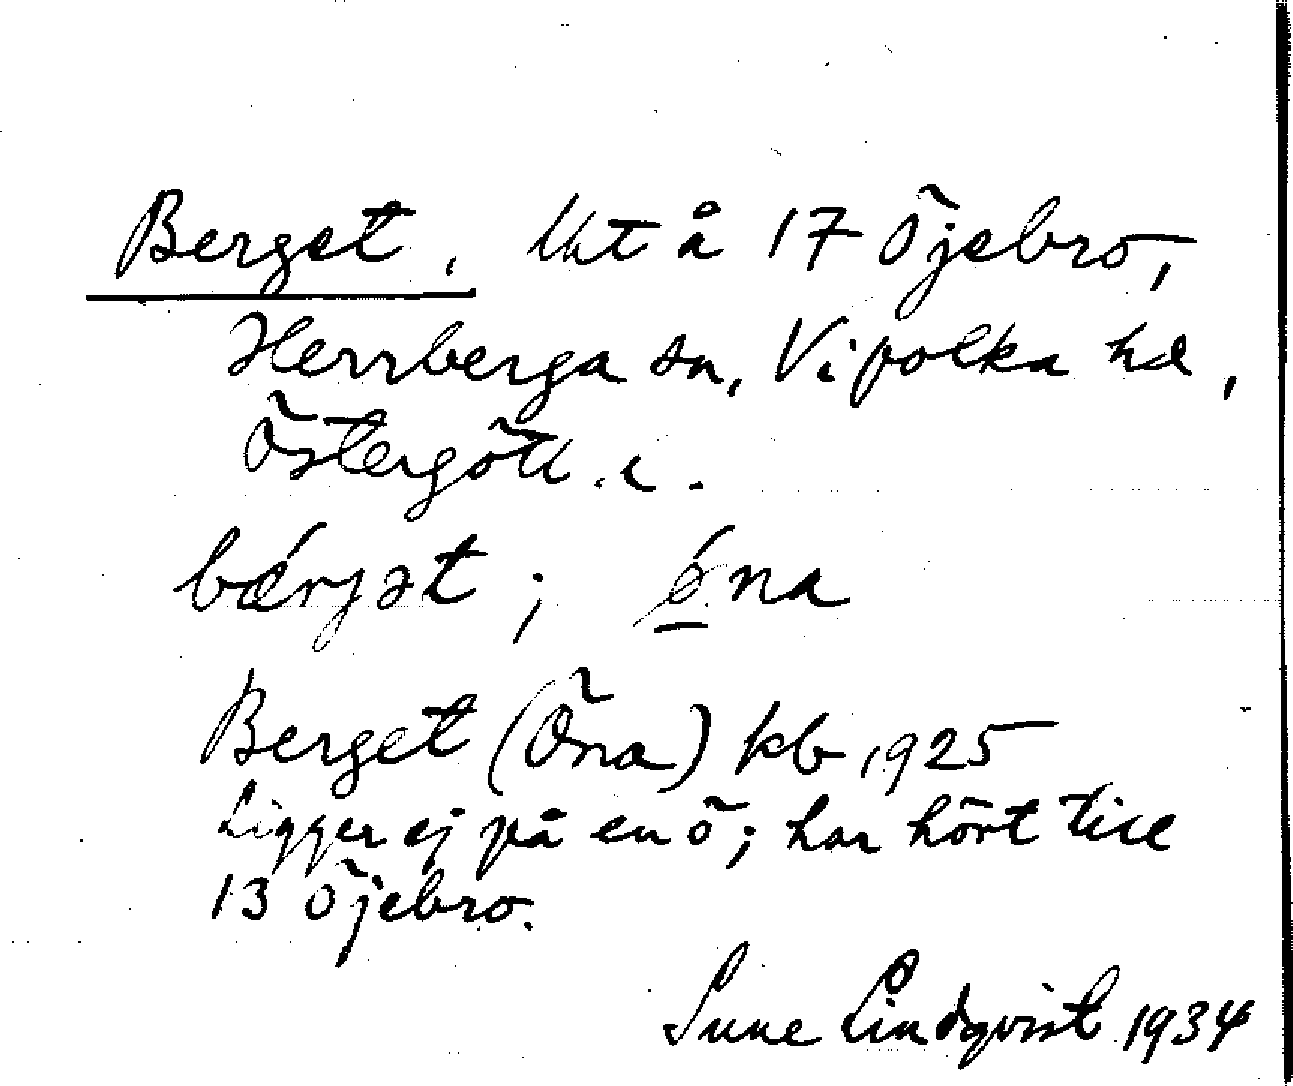 Berget, lht å 17 Öjebro,
Herrberga sn, Vifolka hd,
Östergötl. l.
bǽrjət; ǿna
Berget (Öna) kb 1925
Ligger ej på en ö; har hört till
13 Öjebro.
Sune Lindqvist 1934